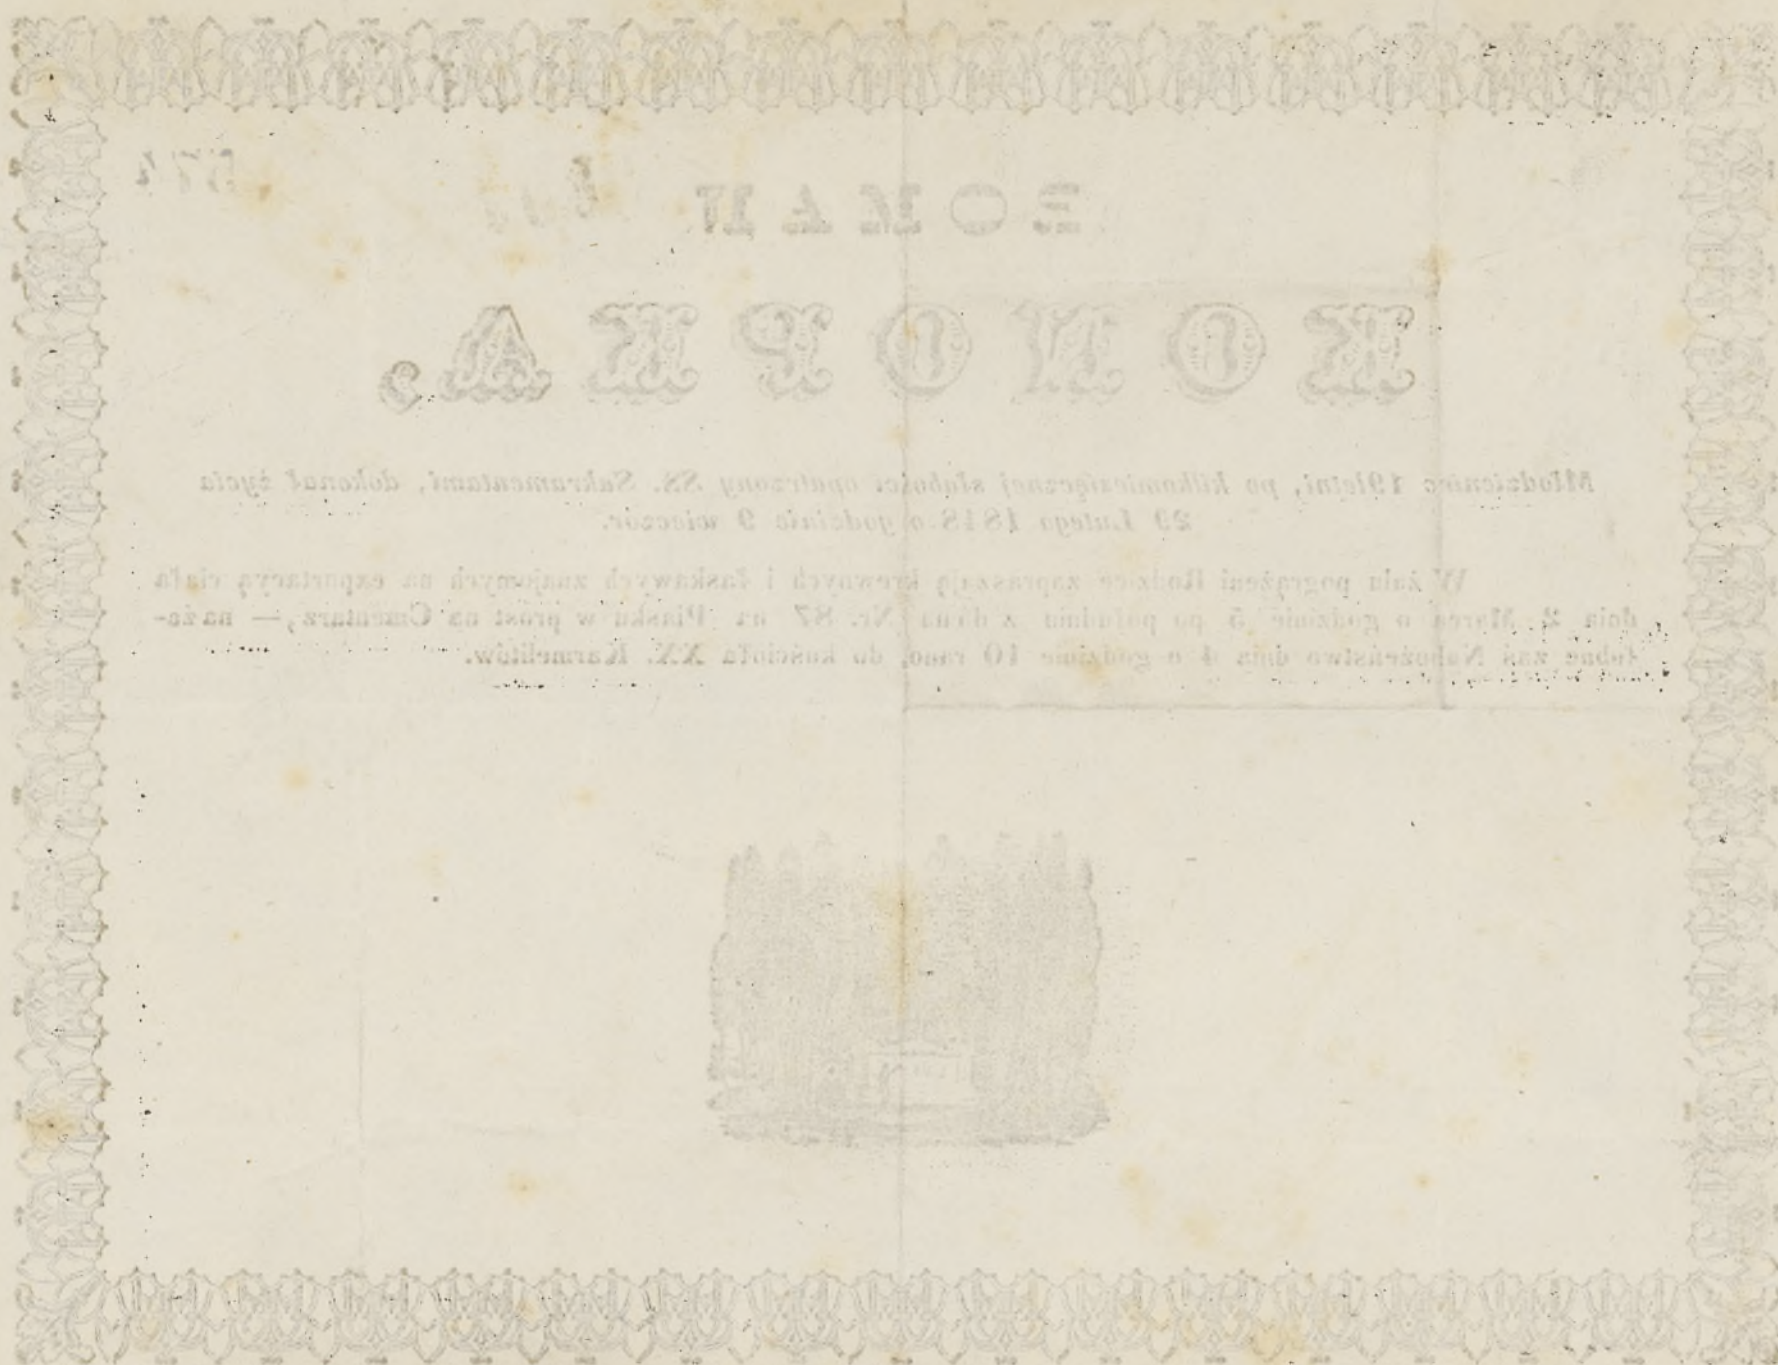 574
ROMAN
KONOPKA,
Młodzieniec 19letni, po kilkomiesięcznej słabości opatrzony SS. Sakramentami, dokonał życia
29 Lutego 1848 o godzinie 9 wieczór.
W żalu pogrążeni Rodzice zapraszają krewnych i łaskawych znajomych na exportacyą ciała
dnia 2 Marca o godzinie 5 po południu z domu Nr. 87 na Piasku w prost na Cmentarz,— naża-
łobne zaś Nabożeństwo dnia 4 o godzinie 10 rano, do kościoła XX. Karmelitów.